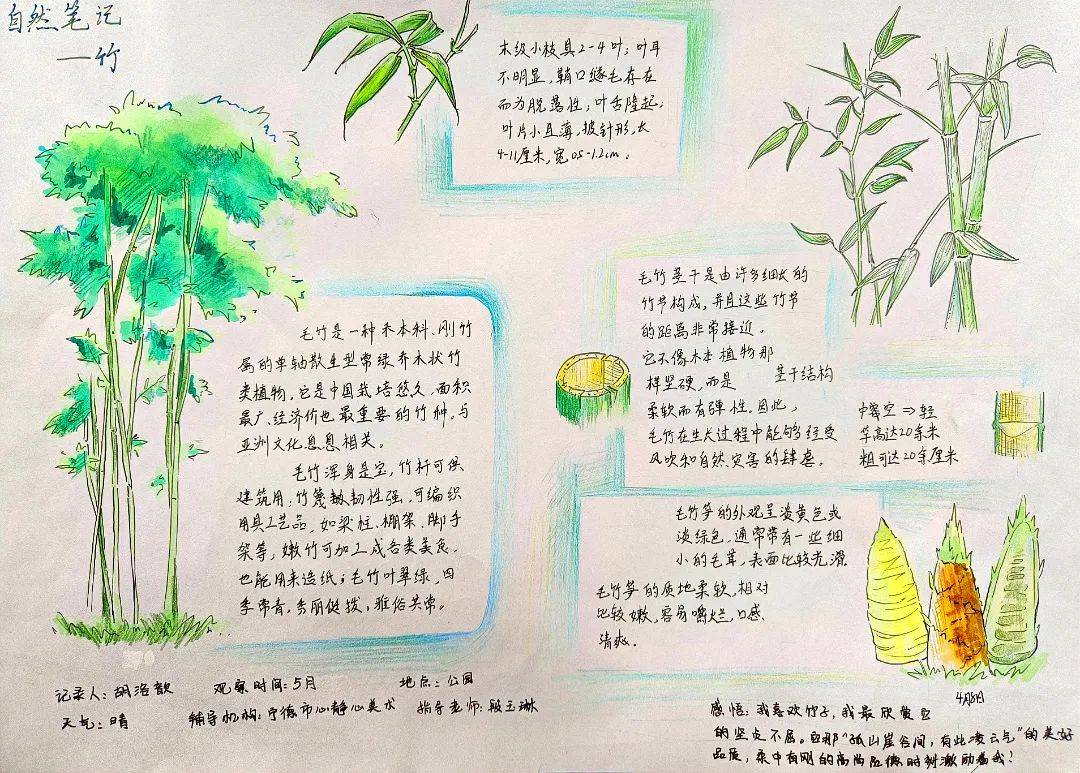 自然笔记
—竹
末级小枝具2-4叶；叶耳
不明显，鞘口缘毛存在
而为脱落性，叶舌隆起；
叶片小且薄，披针形，长
4-11厘米，宽0.5-1.2cm。
毛竹是一种禾本科、刚竹
属的单轴散生型常绿乔木状竹
类植物，它是中国栽培悠久、面积
最广、经济价也最重要的竹种，与
亚洲文化息息相关。
毛竹浑身是宝，竹杆可供
建筑用，竹篾韧性强，可编织
用具工艺品，如梁柱、棚架、脚手
架等，嫩竹可加工成各类美食，
也能用来造纸；毛竹叶翠绿，四
季常青，秀丽挺拔，雅俗共常。
毛竹茎干是由许多细长的
竹节构成，并且这些竹节
的距离非常接近。
它不像木本植物那
样坚硬，而是
柔软而有弹性。因此，
毛竹在生长过程中能够经受
风吹和自然灾害的肆虐。
茎干结构
中空⇒轻
竿高达20多米
粗可达20多厘米
毛竹笋的外观呈淡黄色或
淡绿色，通常带有一些细
小的毛茸，表面比较光滑。
毛竹笋的质地柔软，相对
比较嫩，容易嚼烂，口感
清爽。
4月8日
记录人：胡洛歆 观察时间：5月 地点：公园
天气：晴 辅导机构：宁德市心静心美术 指导老师：段玉琳
感悟：我喜欢竹子，我最欣赏它
的坚贞不屈。它那“孤山崖谷间，有此凌云气”的美好
品质，柔中有刚的高尚品德时刻激励着我！